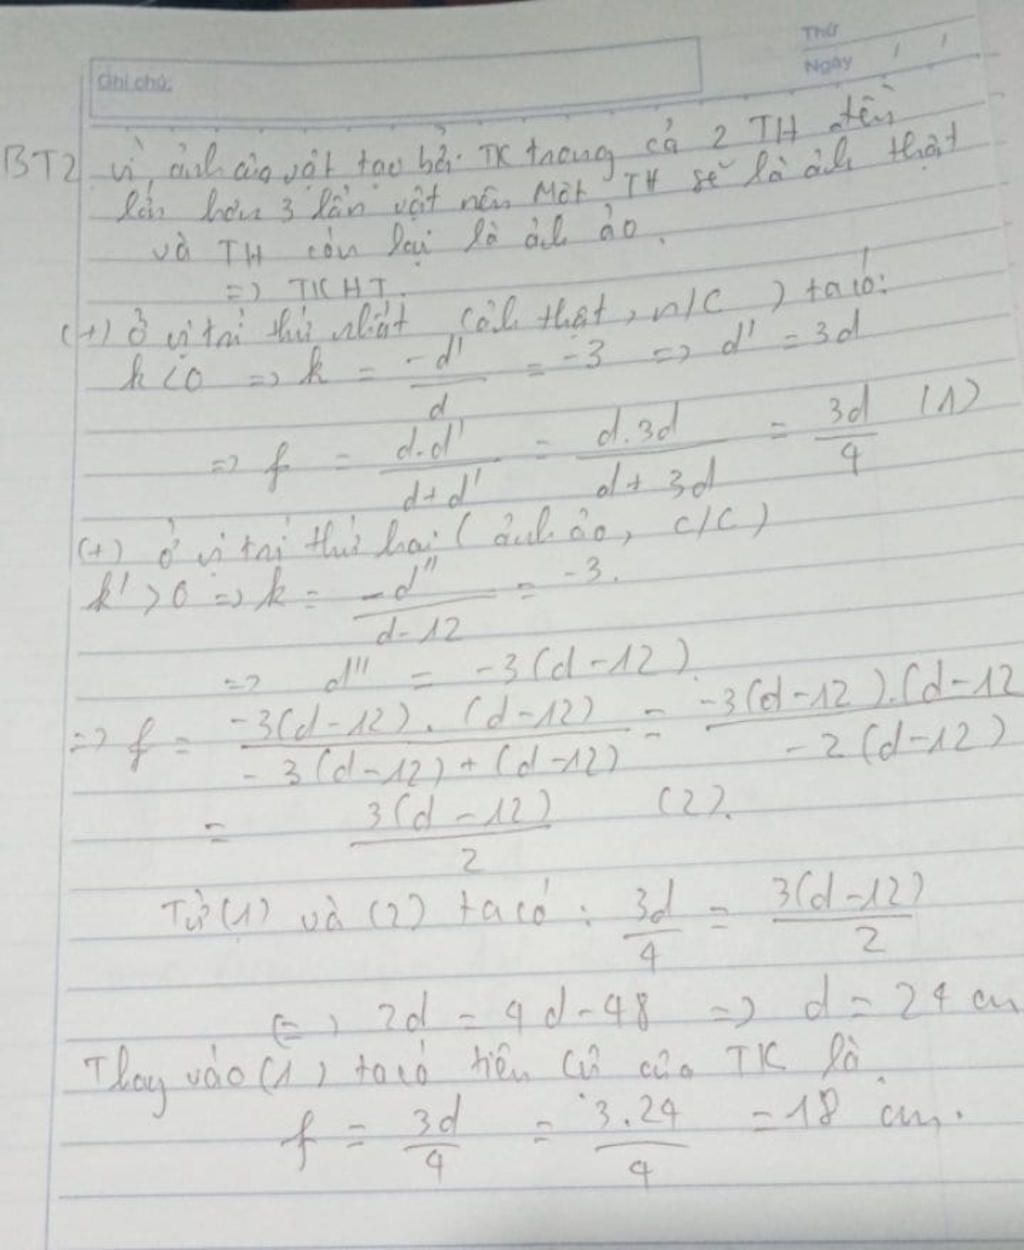 Thứ
Ngày / /
Ghi chú:
BT2 vì ảnh của vật tạo bởi TK trong cả 2 TH đều
lớn hơn 3 lần vật nên Một TH sẽ là ảnh thật
và TH còn lại là ảnh ảo.
=> TKHT.
(+) Ở vị trí thứ nhất (ảnh thật, n/c) ta có:
k<0 => k = -d'/d = -3 => d' = 3d
=> f = d.d'/(d+d') = d.3d/(d+3d) = 3d/4 (1)
(+) ở vị trí thứ hai (ảnh ảo, c/c)
k'>0 => k = -d''/(d-12) = -3.
=> d''' = -3(d-12).
=> f = -3(d-12).(d-12)/(-3(d-12)+(d-12)) = -3(d-12).(d-12/-2(d-12)
= 3(d-12)/2 (2).
Từ (1) và (2) ta có : 3d/4 = 3(d-12)/2
(=) 2d = 4d-48 => d = 24 cm
Thay vào (1) ta có tiêu cự của TK là.
f = 3d/4 = 3.24/4 = 18 cm.